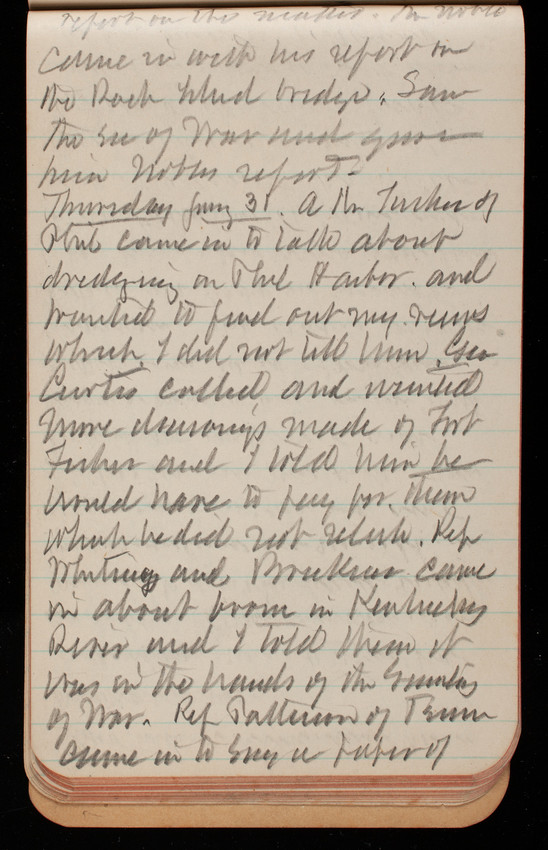 report on this matter. Mr Noble
came in with his report on
the Rock Island bridge. Saw
the Sec of War and gave
him Nobles report.
Thursday Jany 31. A Mr Tucker of
Phil came in to talk about
dredging on Phil Harbor. and
wanted to find out my views
which I did not tell him. Geo
Curtis called and wanted
more drawings made of Fort
Fisher and I told him he
would have to pay for them
which he did not relish. Rep
and came
in about boom in Kentucky
River and I told them it
was in the hands of the Secretary
of War. Rep Patterson of Tenn
came in to a paper of